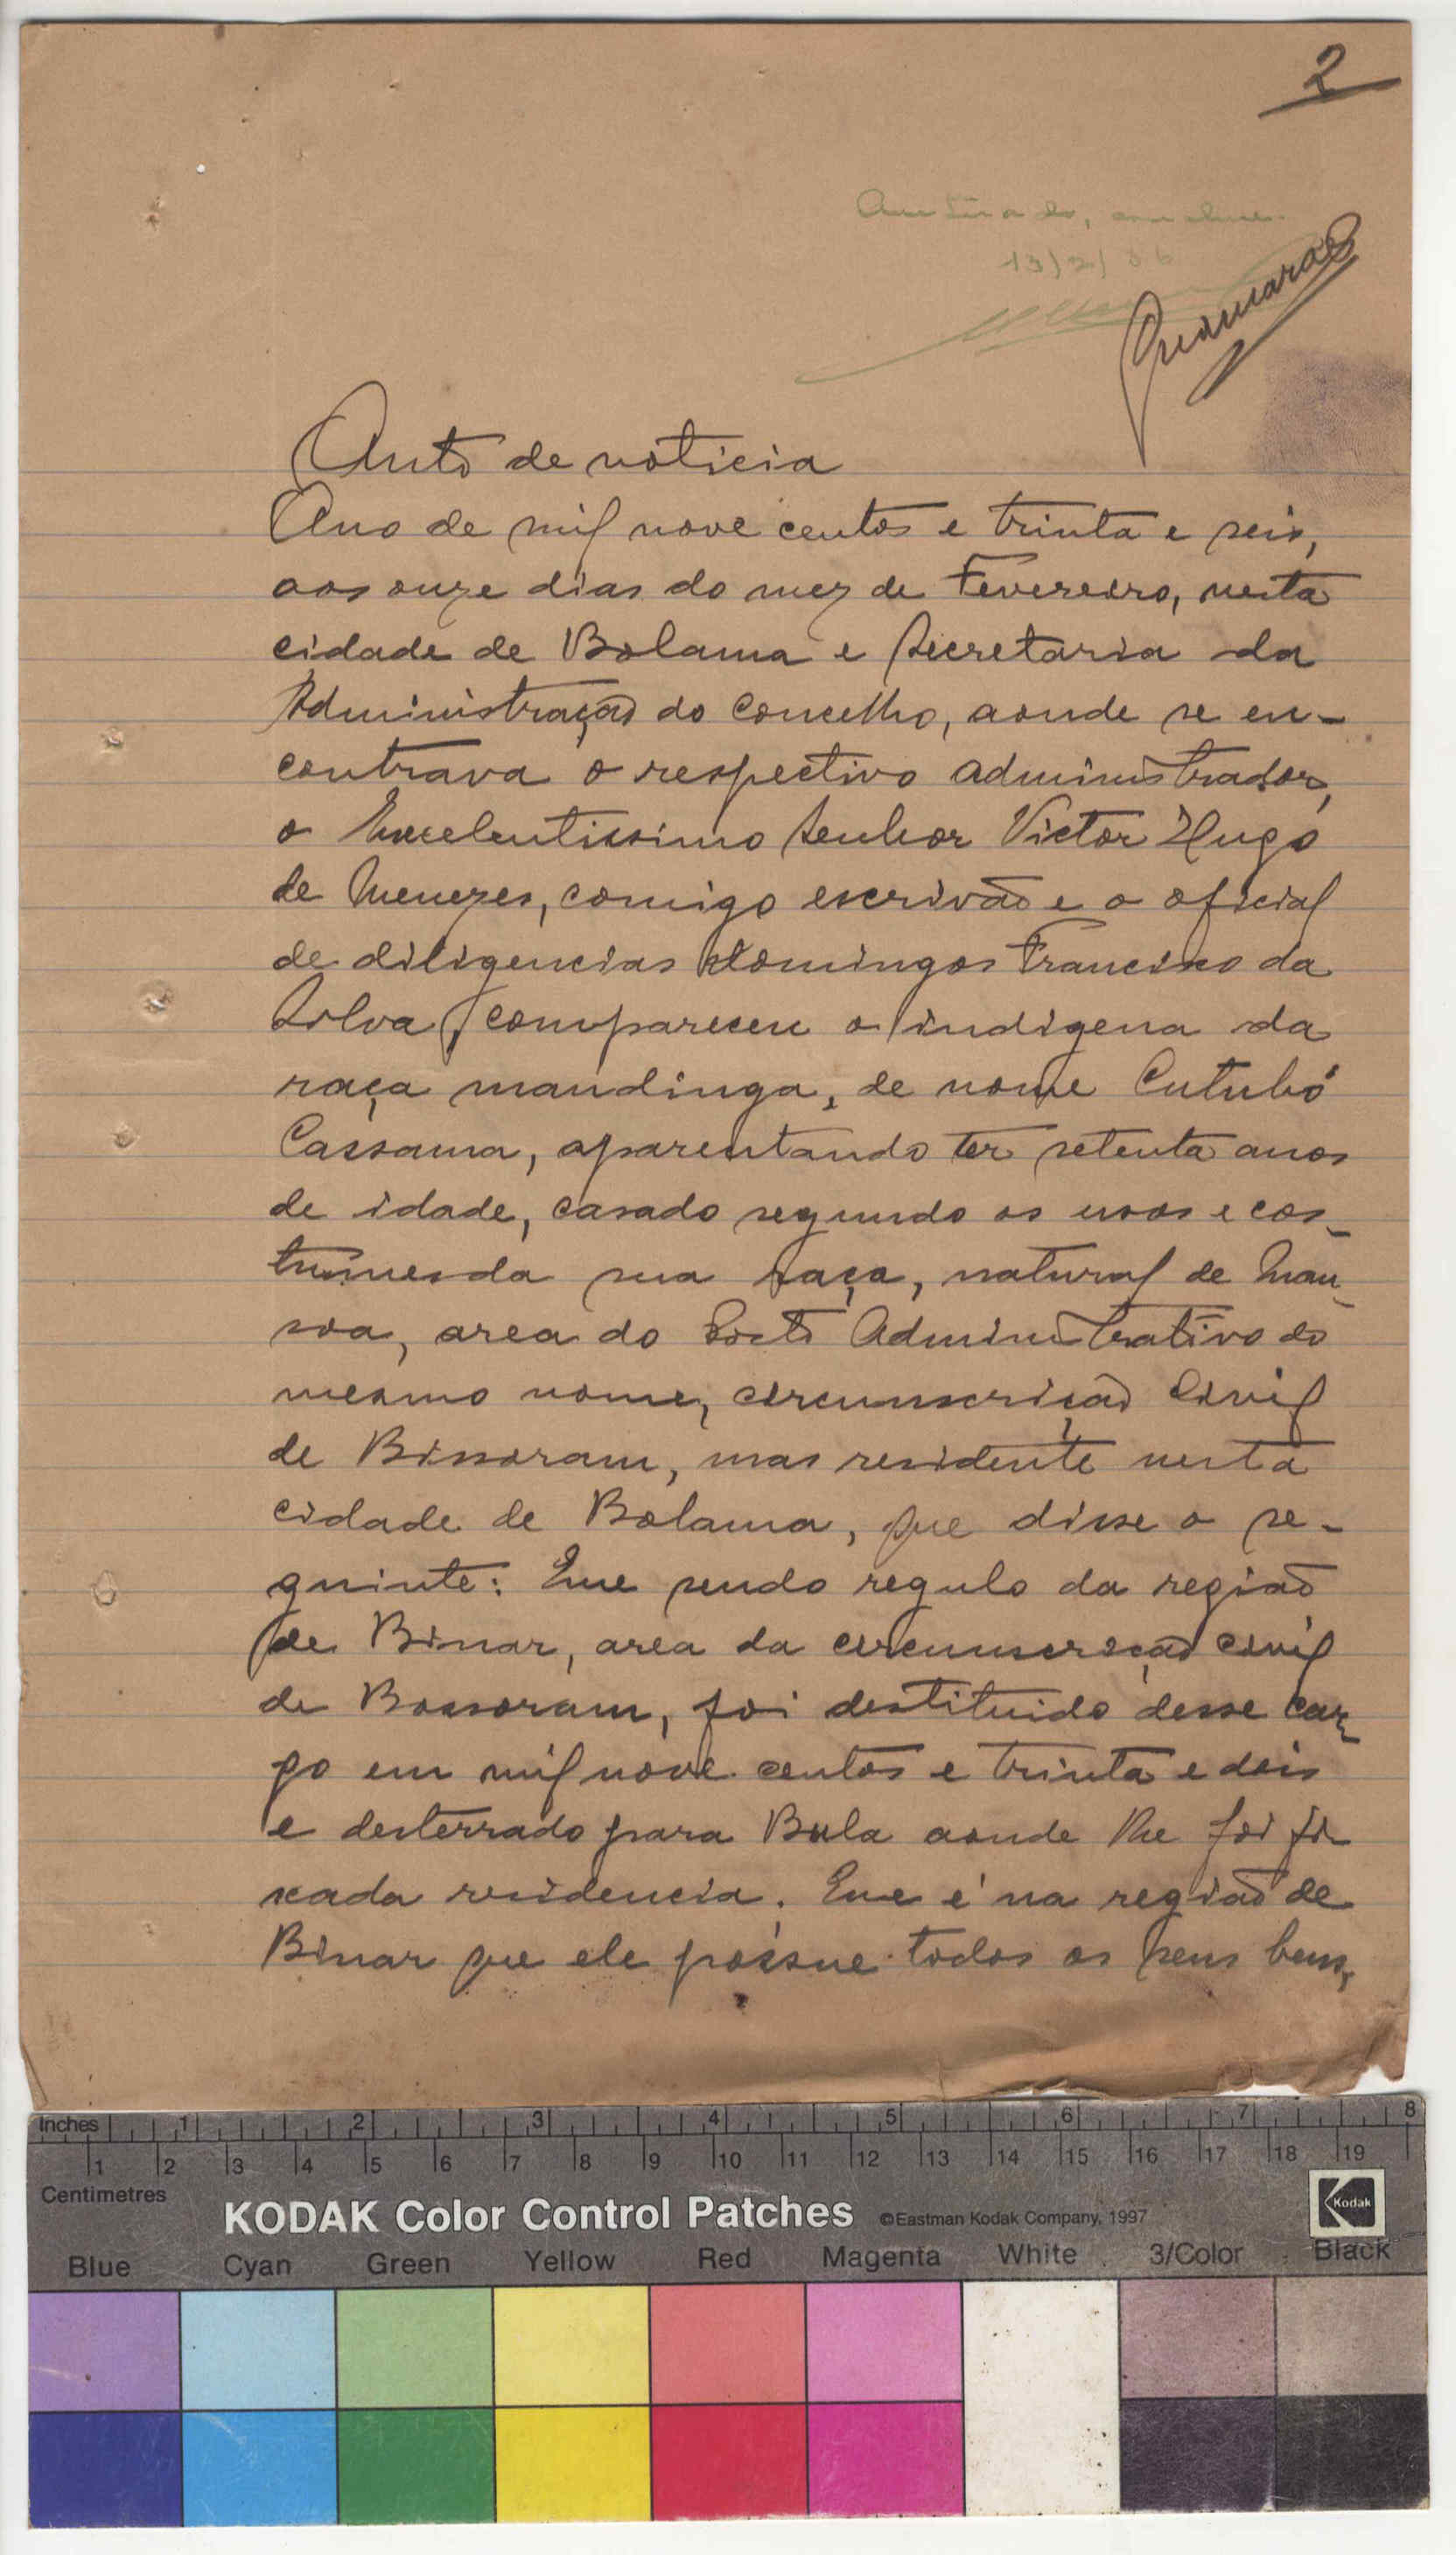 2
13/2/36
Guimarães
Auto de noticia
Ano de mil nove centos e trinta e seis,
aos onze dias do mez de Fevereiro, nesta
cidade de Bolama e Secretaria da
Administração do Concelho, aonde se en-
contrava o respectivo administrador,
o Excelentissimo Senhor Victor Hugo
de Menezes, comigo escrivão e o oficial
de diligencias Domingos Francisco da
Silva, compareceu o indigena da
raça mandinga, de nome Cutubó
Cassama, aparentando ter setenta anos
de idade, casado segundo os usos e cos-
tumes da sua raça, natural de Man-
soa, area do Posto Administrativo do
mesmo nome, circunscrição Civil
de Bissoram, mas residente nesta
cidade de Bolama, que disse o se-
guinte: Que sendo regulo da região
de Binar, area da circunscrição civil
de Bossoram, foi destituido desse car-
go em mil nove centos e trinta e dois
e desterrado para Bula aonde lhe foi fi-
xada residencia. Que é na região de
Binar que ele possue todos os seus bens,
Inches 1 2 3 4 5 6 7 8
1 2 3 4 5 6 7 8 9 10 11 12 13 14 15 16 17 18 19
Centimetres
KODAK Color Control Patches ©Eastman Kodak Company, 1997 Kodak
Blue Cyan Green Yellow Red Magenta White 3/Color Black